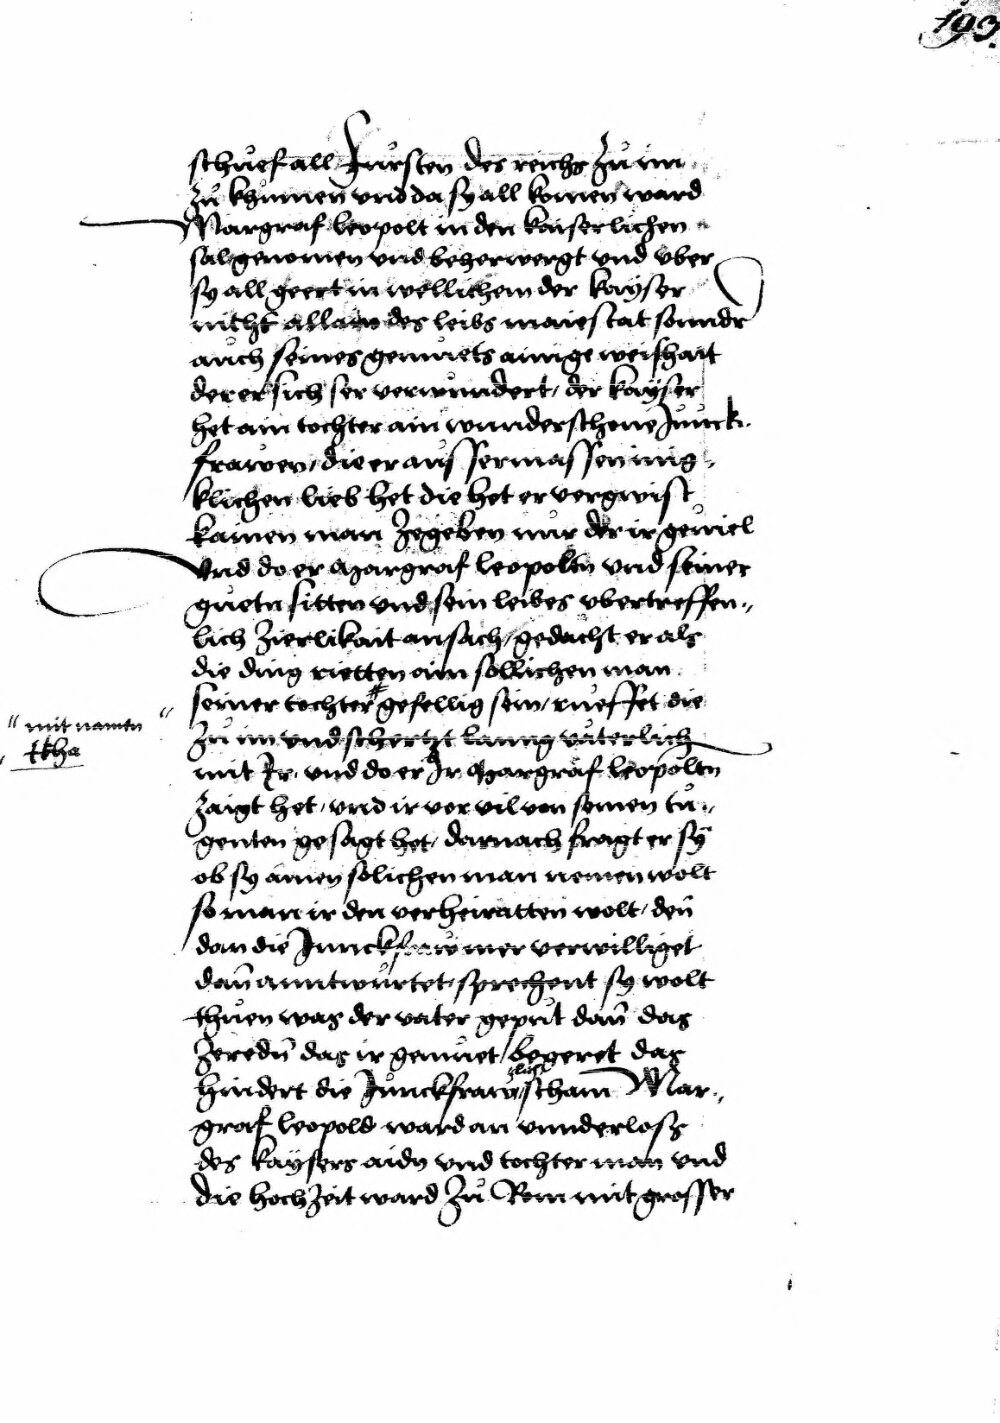 193.
schuef all Fursten des reichs zu im
zu khumen vnd da sy all komen ward
Margraf leopolt in den kaiserlichen
sal genomen vnd beherwergt vnd vber
sy all geert in wellichem der kayser
nicht allain des leibs maiestat sonndr
auch seines gemuets ainige weishait
der er sich ser verwundert / der kayser
het ain tochter ain wunderschone Junck„
frawen / die er aussermassen innig„
klichen lieb het die het er vergwist
kainen man zegeben nur der ir geuiel
Vnd do er Margraf leopoltn vnd seiner
guetn sitten vnd sein leibes vbertreffen„
lich zierlikait ansach / gedacht er als
die ding rietten ain sollichen man
seiner tochter # gefellig sein / rueffet die
" mit namen "
Itha
zu im vnd schertzt lanng vaterlich
mit Ir vnd do er Ir Margraf leopoltn
zaigt het / vnd ir vor vil von seinen tu„
genten gesagt het / darnach fragt er sy
ob sy ainen solichen man nemen wolt
so man ir den verheiratten wolt / den
dan die Junckfraw mer verwilliget
dan anntwurtet / sprechent sy wolt
thuen was der vater geput dan das
zeredn das ir gemuet / begeret das
hindert die Junckfrawlich scham Mar„
graf leopold ward an vnnderlosz
des kaysers aidn vnd tochter man vnd
die hochzeit ward zu Rom mit grosser